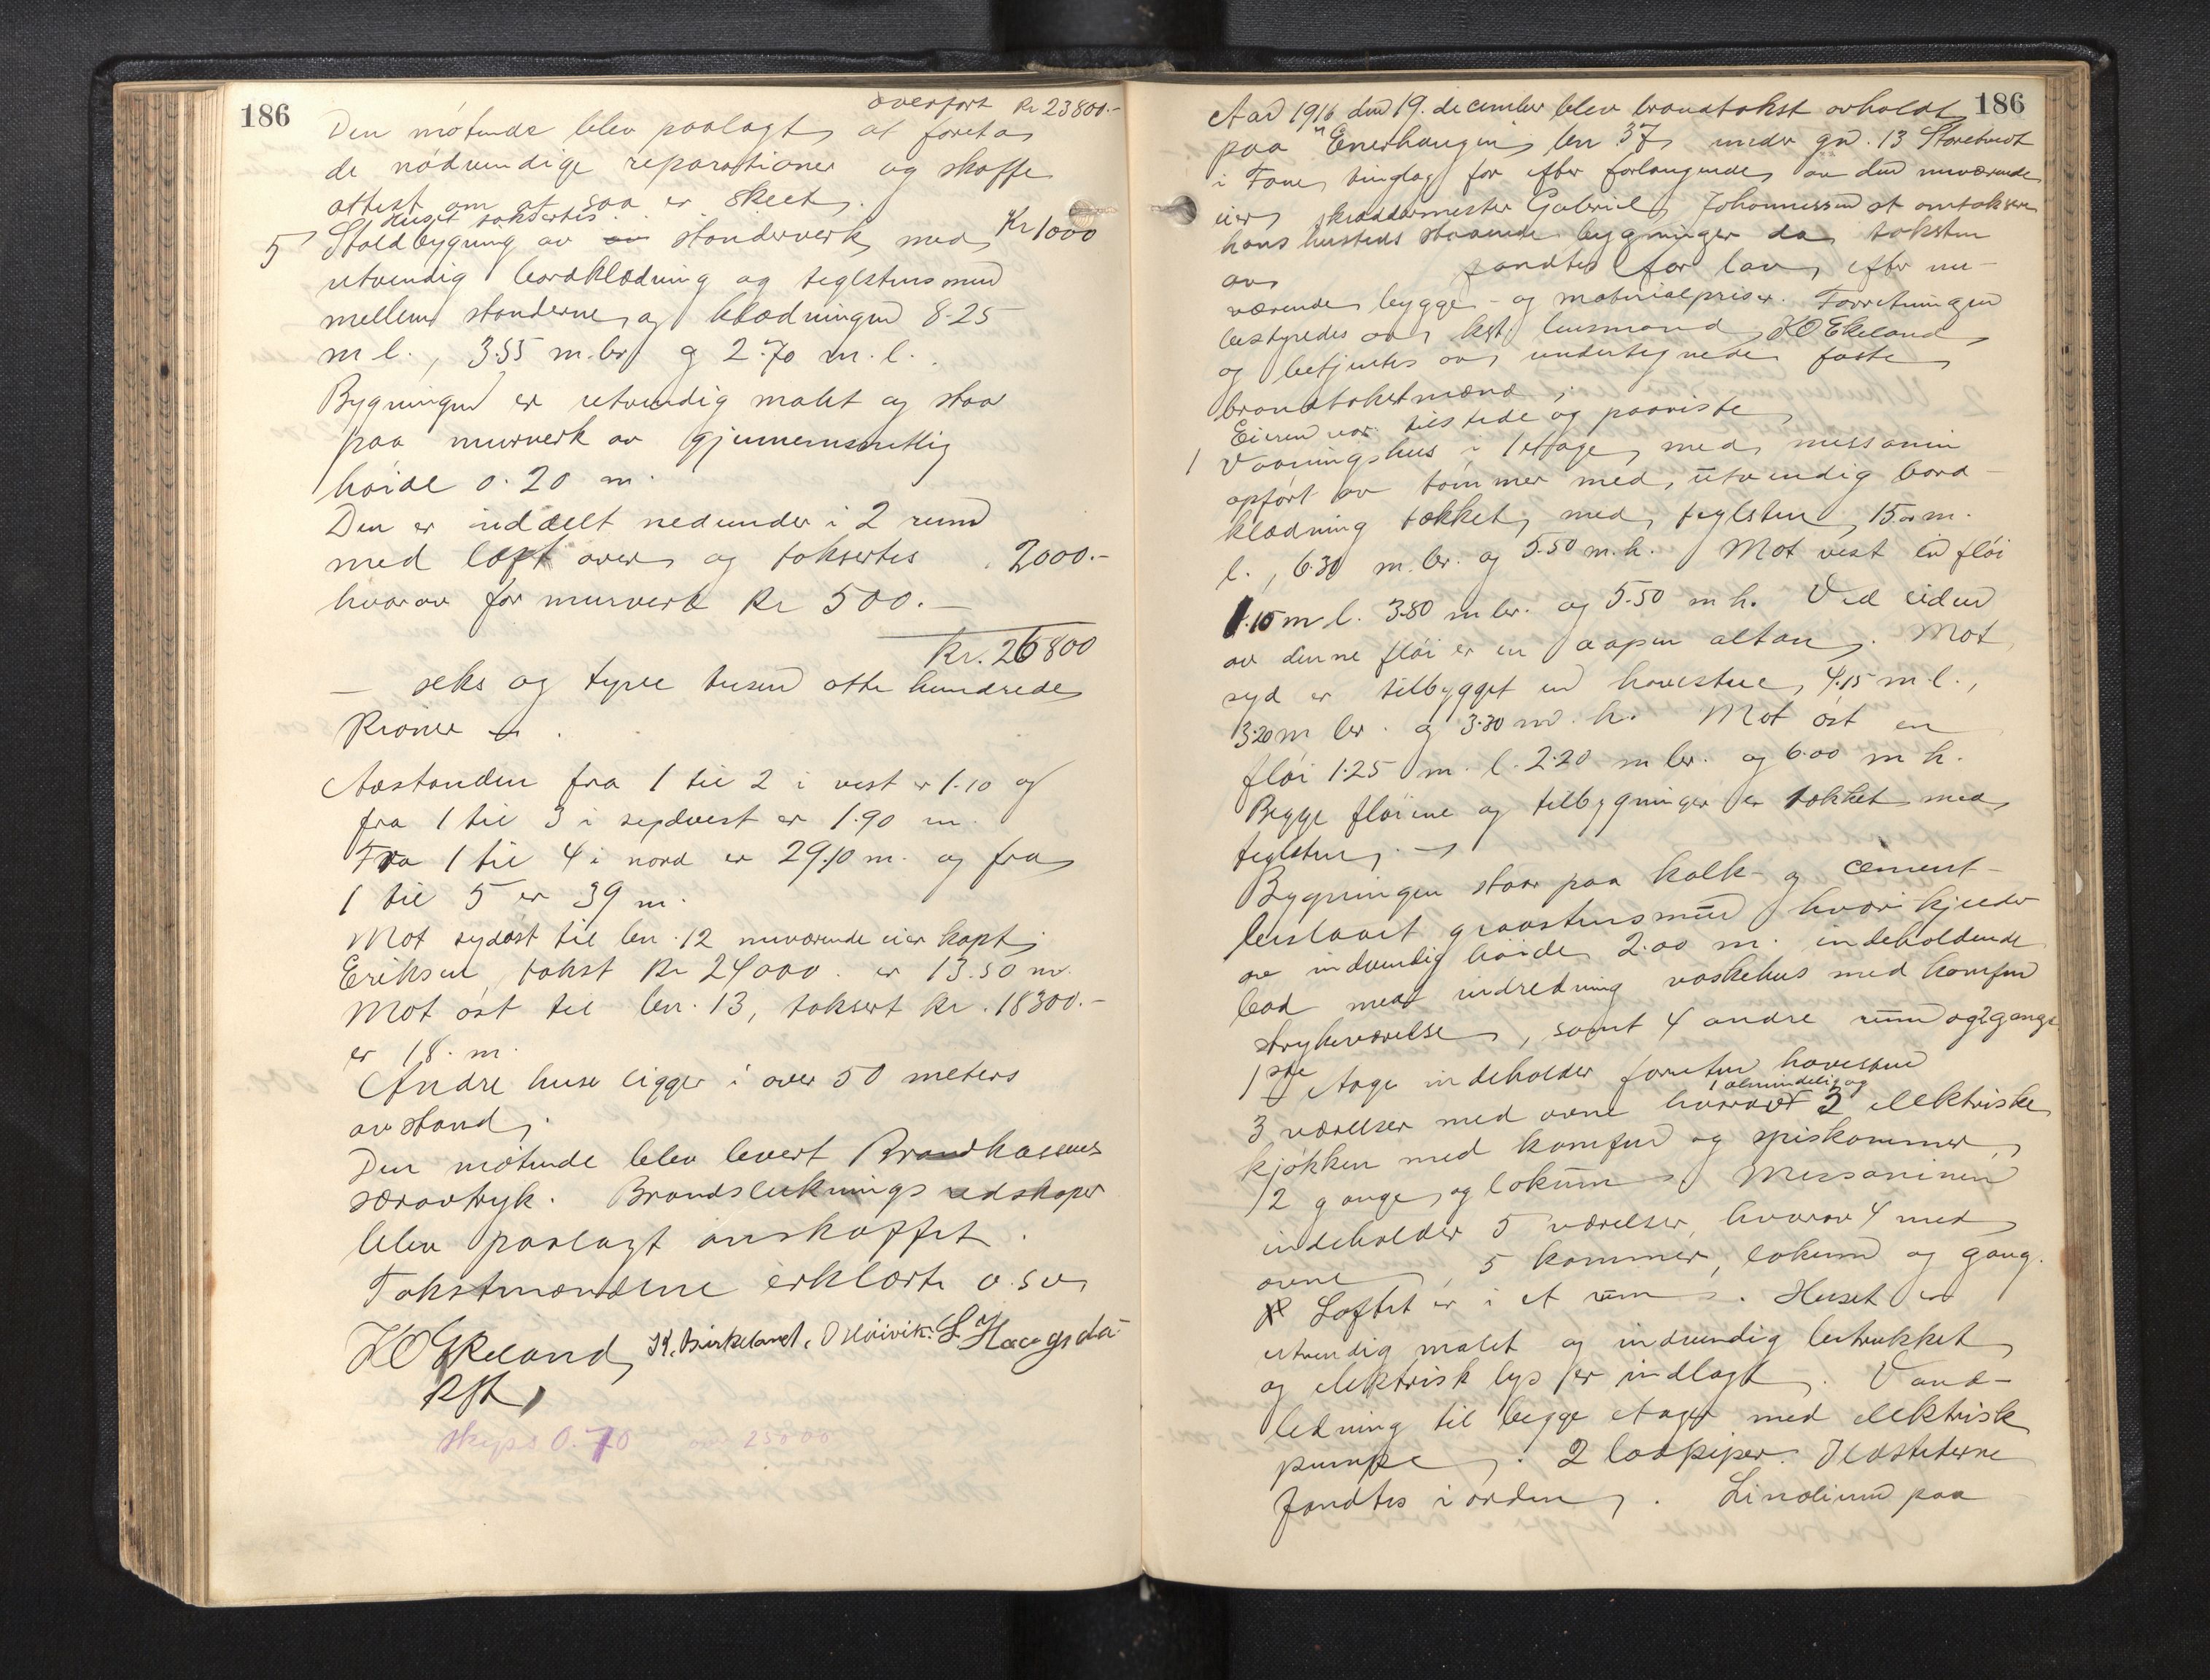 186
overført Kr 23800.-
Den møtende blev paalagt at foreta
de nødvendige reparationer og skaffe
attest om at saa er skeet.
Huset taksertes Kr 1000
5 Staldbygning av standerverk med
utvendig bordklædning og teglstensmur
mellem standerne og klædningen 8.25
m l., 3.55 m. br. og 2.70 m. l.
Bygningen er utvendig malt og staar
paa murverk av gjennemsnittlig
høide 0.20 m.
Den er inddelt nedunder i 2 rum
med loft over og taksertes 2000.-
hvorav for murverk Kr 500.-
Kr. 26800
— seks og tyve tusen otte hundrede
Kroner —.
Avstanden fra 1 til 2 i vest er 1.10 og
fra 1 til 3 i sydvest er 1.90 m.
Fra 1 til 4 i nord er 29.10 m. og fra
1 til 5 er 39 m.
Mot sydøst til br. 12 nuværende eier kapt.
Eriksen, takst Kr 24000. er 13.50 m.
Mot øst til br. 13, taksert kr. 18300.-
er 18. m.
Andre huse ligger i over 50 meters
avstand.
Den møtende blev levert Brandkassens
særavtryk. Brandslukningsredskaper
blev paalagt anskaffet.
Takstmændene erklærte o.s.v.
K O Ekeland, K. Birkeland, O Høivik. L Haugsda
Kst.
Skyds 0.70 25000
186
Aar 1916 den 19. december blev brandtakst avholdt
paa "Enerhaugen" br 37 under gn. 13 Storetvedt
i Fane tinglag for efter forlangende av den nuværende
eier, skræddermester Gabriel Johannessen at omtaksere
hans hersteds staaende bygninger da taksten
av fandtes for lav efter nu-
værende bygge- og materialpriser. Forretningen
bestyredes av kst. lensmand K O Ekeland
og betjentes av undertegnede faste
brandtakstmænd.
Eieren var tilstede og paaviste
1 Vaaningshus i 1 etage med messanin
opført av tømmer med utvendig bord-
klædning tækket med teglsten, 15.00 m.
l., 6.30 m. br. og 5.50 m. h. Mot vest en fløi
1.15 m l. 3.80 m br. og 5.50 m h. Ved siden
av denne fløi er en aapen altan. Mot
syd er tilbygget en havestue, 4.15 m. l.,
3.20 m br. og 3.30 m. h. Mot øst en
fløi 1.25 m. l. 2.20 m br. og 6.00 m h.
Begge fløiene og tilbygninger er tækket med
teglsten.
Bygningen staar paa kalk- og cement-
beslaaet graastensmur hvori kjelder
av indvendig høide 2.00 m. indeholdende
bad med indredning vaskehus med komfur
strykeværelse, samt 4 andre rum og 2 gange
1ste Etage indeholder foruten havestuen
3 værelser med ovne hvorav 1 almindelig og 2 elektriske
kjøkken med komfur og spiskammer,
2 gange og lokum. Messaninen
indeholder 5 værelser, hvorav 4 med
ovne, 5 kammer, lokum og gang.
Loftet er i et rum. Huset er
utvendig malet og indvendig betrukket
og elektrisk lys er indlagt. Vand-
ledning til begge etager med elektrisk
pumpe. 2 løspiper. Ildstederne
fandtes i orden. Linolium paa